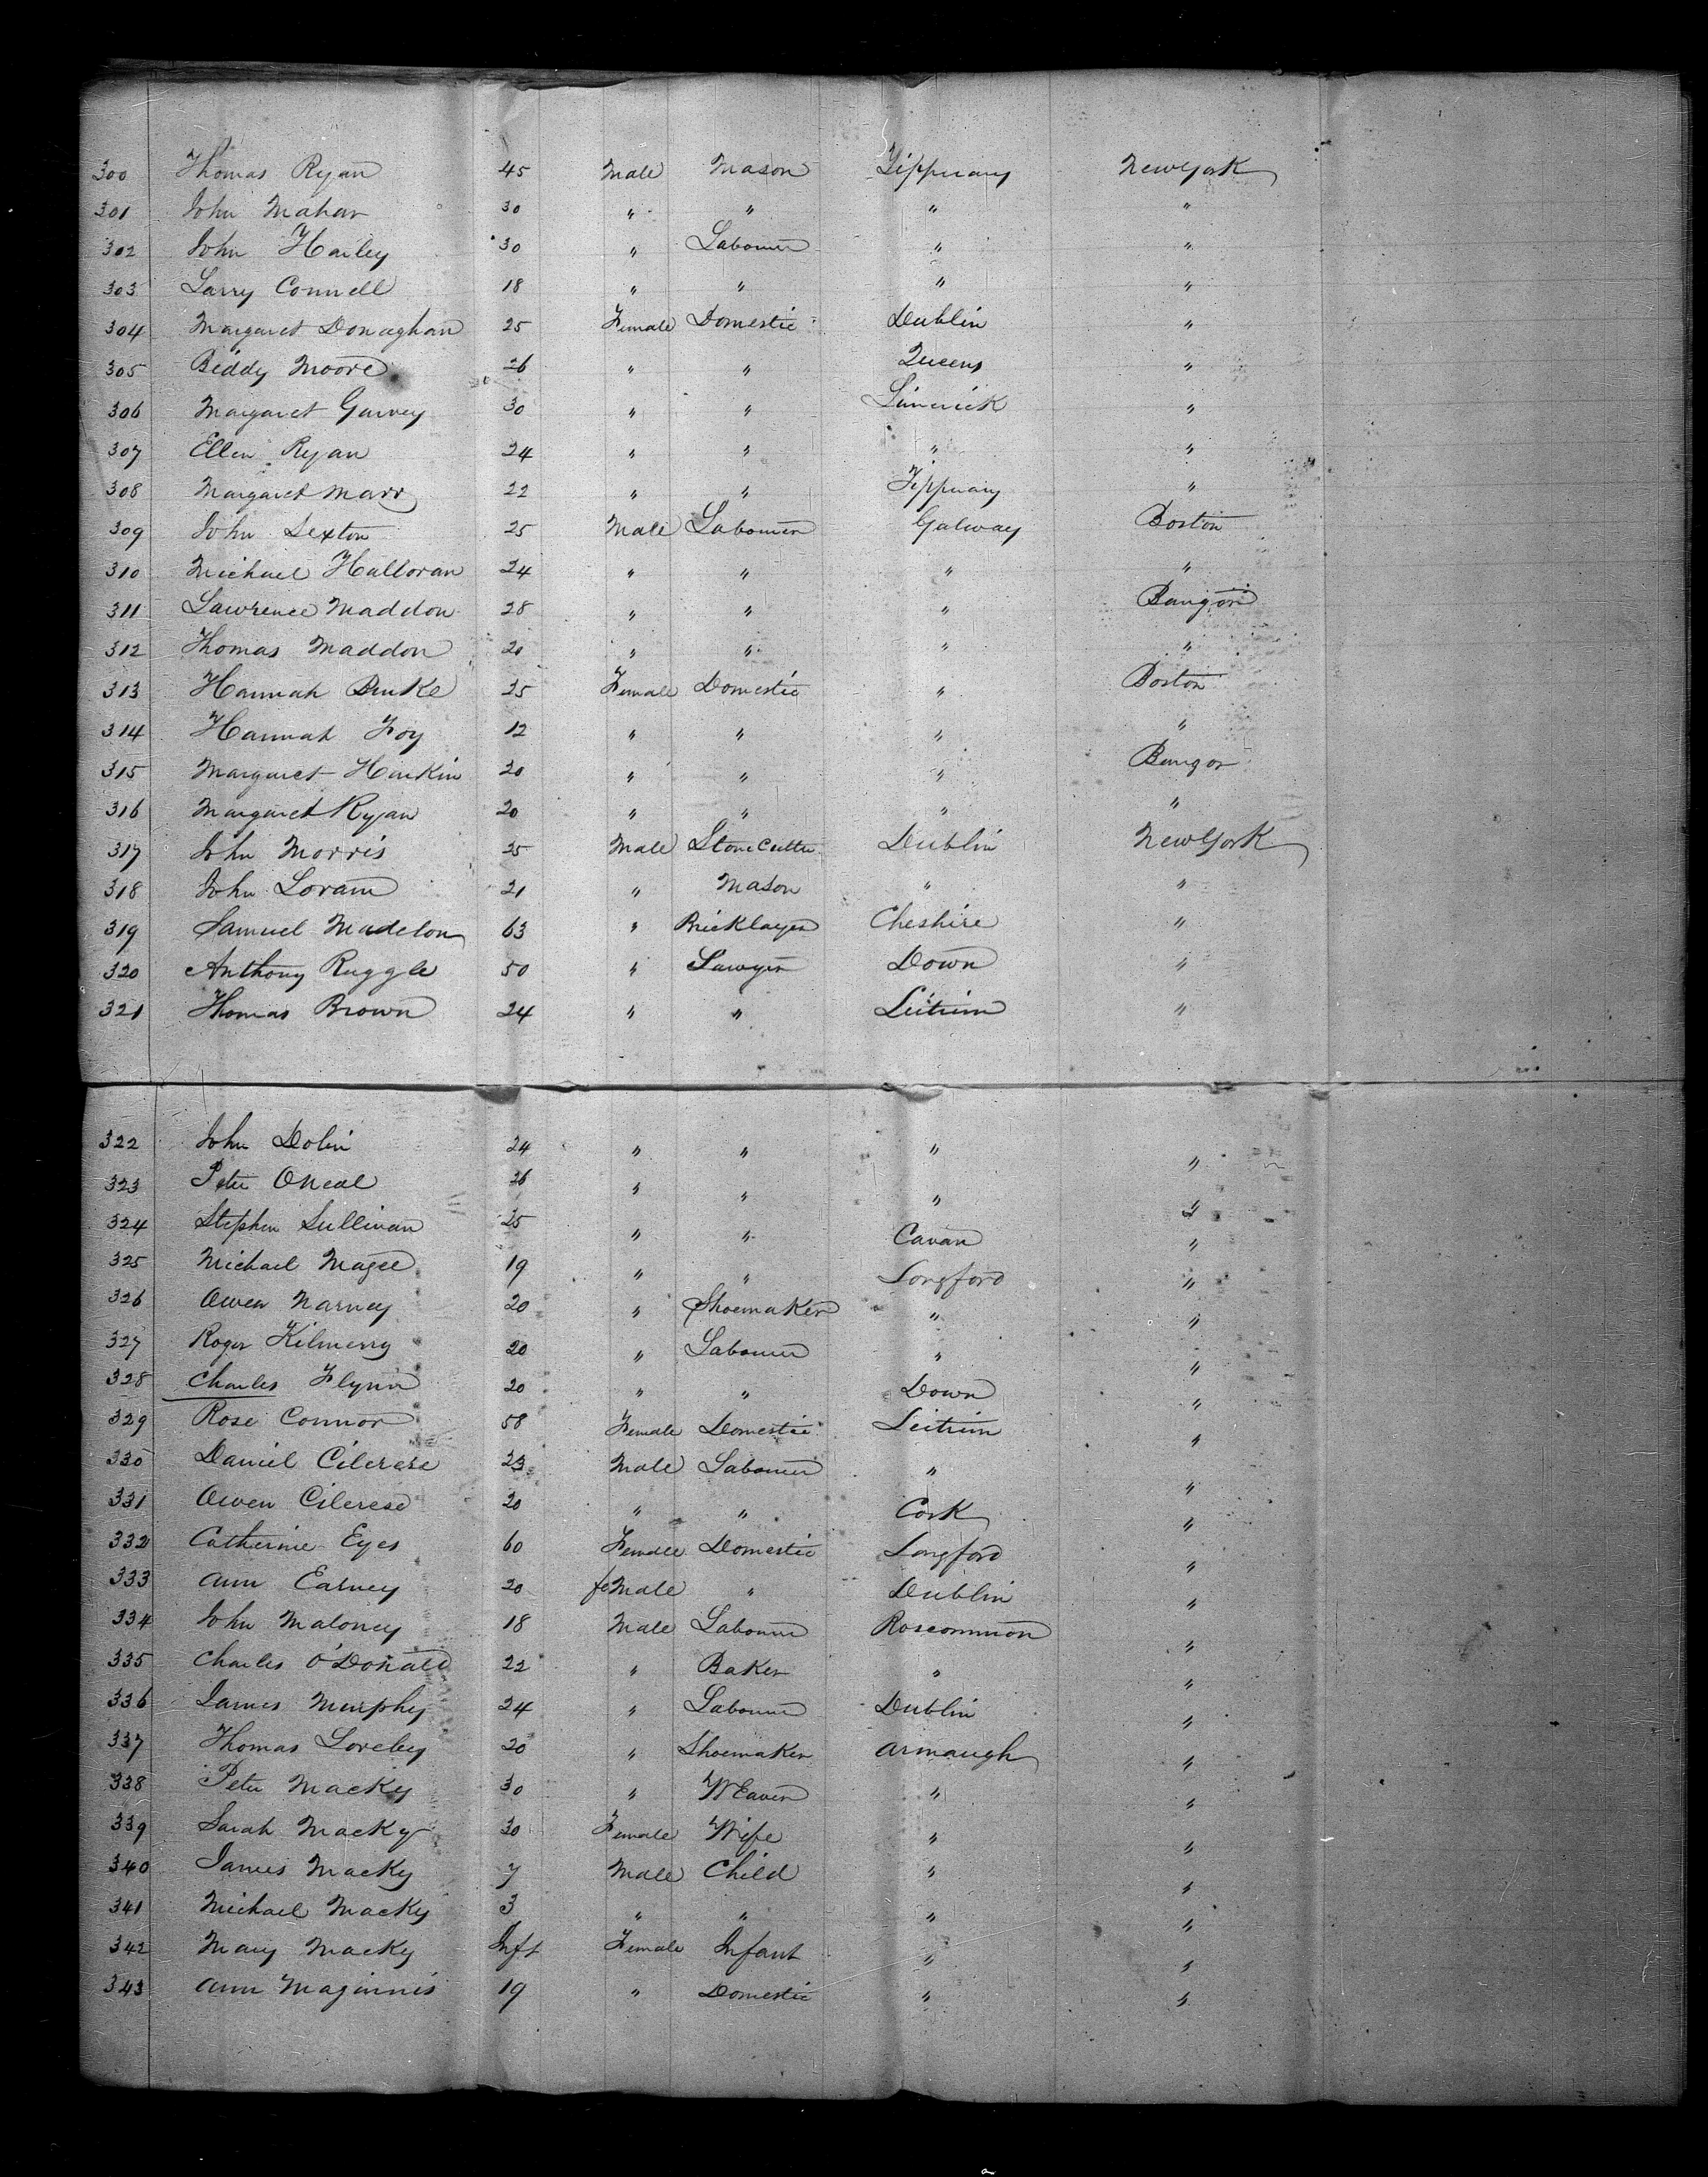 300 Thomas Ryan 45 Male Mason Tipperary New York
301 John Mahar 30 " " " "
302 John Harley 30 " Labourer " "
303 Larry Connell 18 " " " "
304 Margaret Donaghan 25 Female Domestic Dublin "
305 Biddy Moore 26 " " Queens "
306 Margaret Garvey 30 " " Limerick "
307 Ellen Ryan 24 " " " "
308 Margaret Marr 22 " " Tipperary "
309 John Sexton 25 Male Labourer Galway Boston
310 Michael Halloran 24 " " " "
311 Lawrence Maddon 28 " " " Bangor
312 Thomas Maddon 20 " " " "
313 Hannah Burke 25 Female Domestic " Boston
314 Hannah Foy 12 " " " "
315 Margaret Harkin 20 " " " Bangor
316 Margaret Ryan 20 " " " "
317 John Morris 25 Male Stone Cutter Dublin New York
318 John Loram 21 " Mason " "
319 Samuel Madelon 63 " Bricklayer Cheshire "
320 Anthony Ruggle 50 " Sawyer Down "
321 Thomas Brown 24 " " Leitrim "
322 John Dolin 24 " " " "
323 Peter ONeal 26 " " " "
324 Stephen Sullivan 25 " " Cavan "
325 Michael Magee 19 " " Longford "
326 Owen Narney 20 " Shoemaker " "
327 Roger Kilmerry 20 " Labourer " "
328 Charles Flynn 20 " " Down "
329 Rose Connor 58 Female Domestic Leitrim "
330 Daniel Cilerese 23 Male Labourer " "
331 Owen Cilerese 20 " " Cork "
332 Catherine Eyes 60 Female Domestic Longford "
333 Ann Earney 20 feMale " Dublin "
334 John Maloney 18 Male Labourer Roscommon "
335 Charles O'Donald 22 " Baker " "
336 James Murphy 24 " Labourer Dublin "
337 Thomas Loreby 20 " Shoemaker Armaugh "
338 Peter Macky 30 " WEaver " "
339 Sarah Macky 30 Female Wife " "
340 James Macky 7 Male Child " "
341 Michael Macky 3 " " " "
342 Mary Macky Inft Female Infant " "
343 Ann Maginnis 19 " Domestic " "